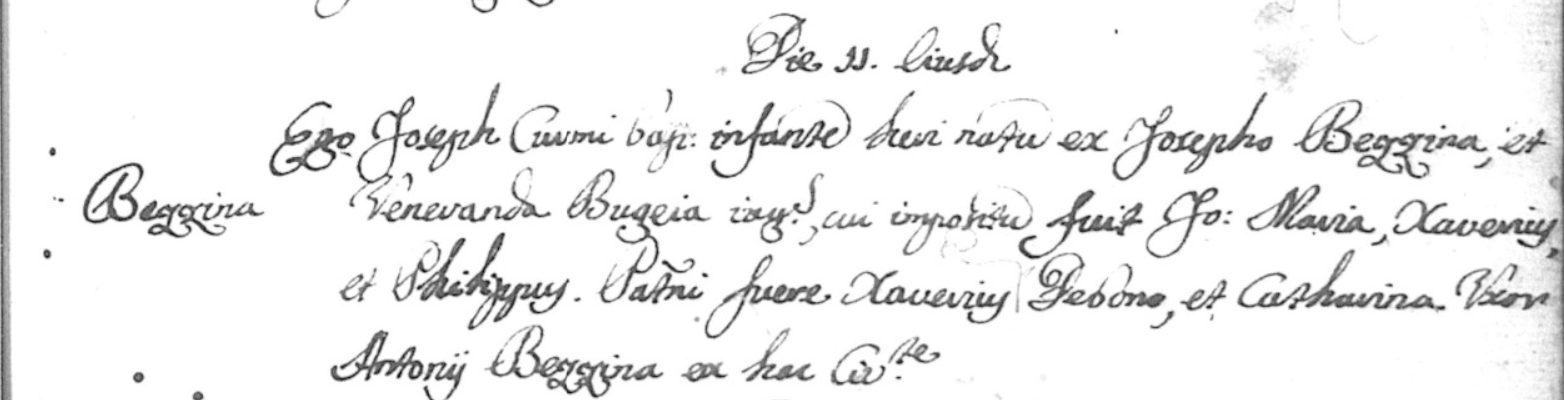 Die 11. Eiusd
Ego Joseph Curmi bapt: infante heri natu ex Josepho Beggina, et
Beggina
Veneranda Bugeia iug:, cui impositu fuit Jo: Maria, Xaverius,
et Philippus. Patni fuere Xaverius Debono, et Catharina Uxor
Antonij Beggina ex hac Civ:te